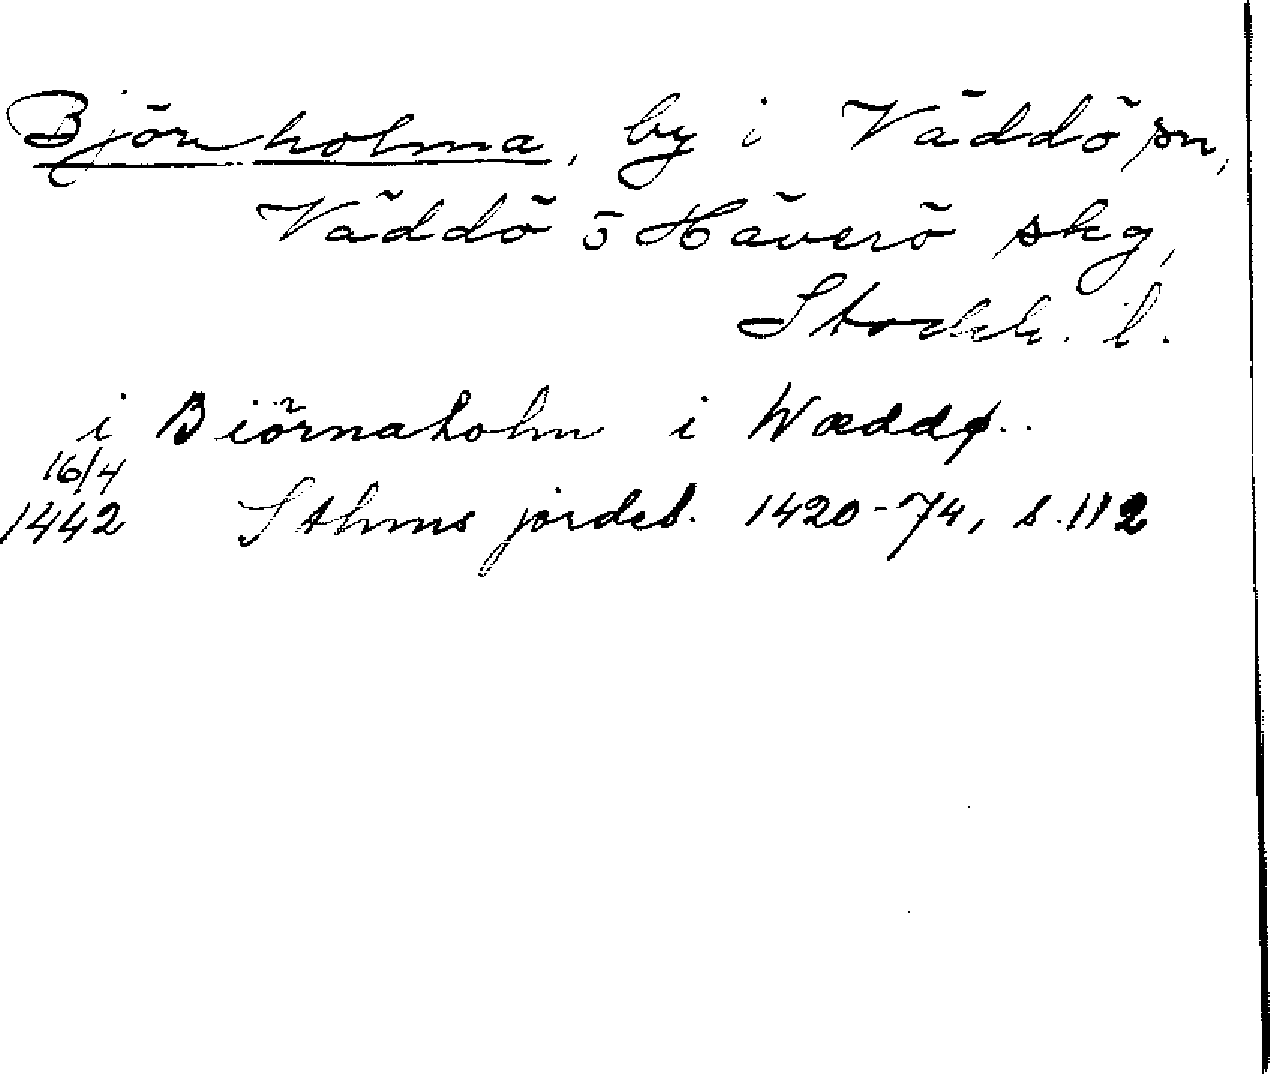 Björnholma, by i Väddö sn,
Väddö o Häverö skg,
Stockh. l.
i Biörnaholm i Wæddø..
16/4
1442 Sthms jordeb. 1420-74, s. 112